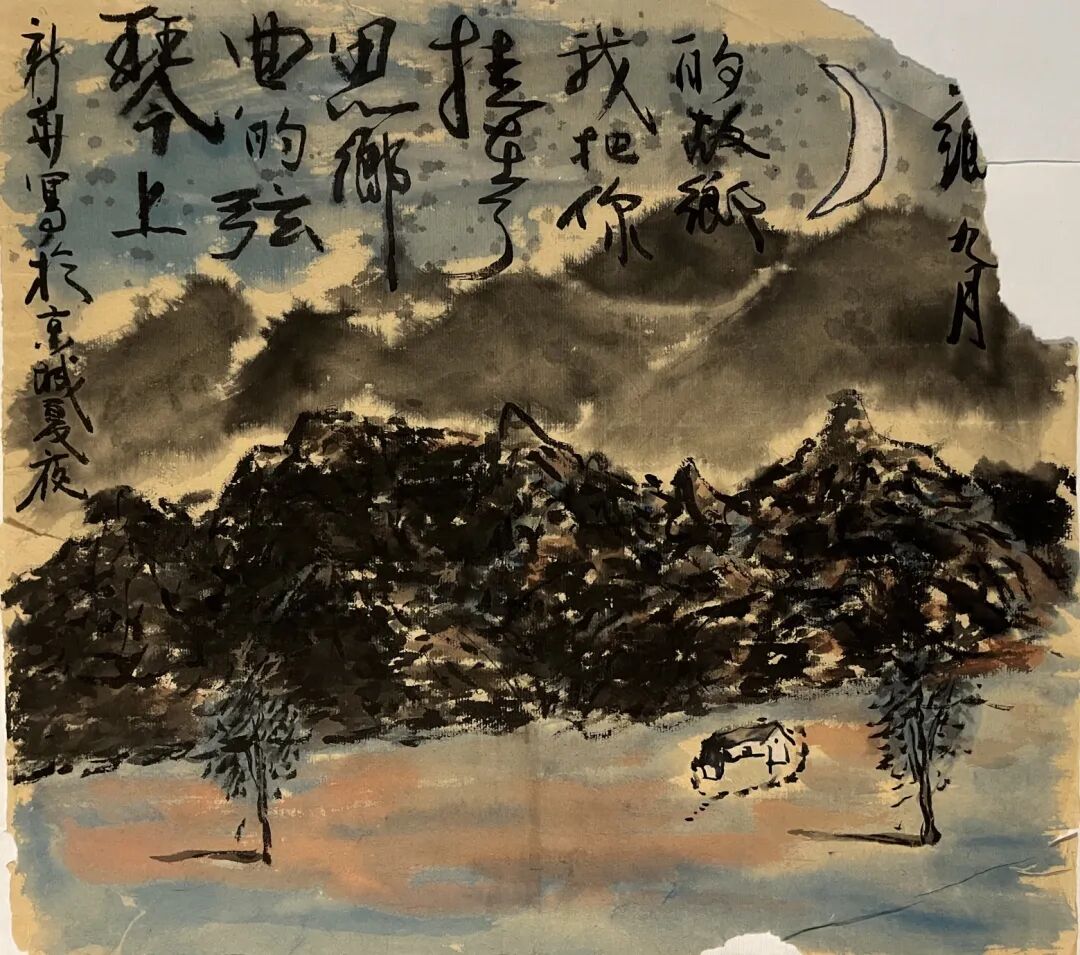 九月
的故鄉
我把你
挂在了
思鄉
曲的弦
琴上
新 寫於京城夏夜